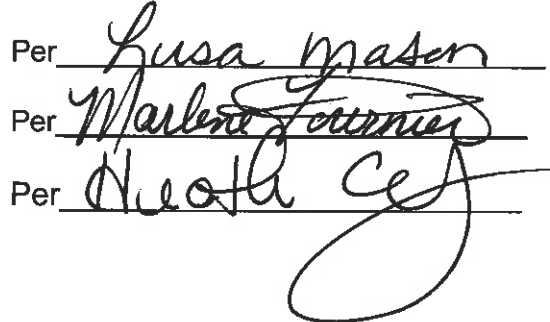 Per Lusa Mason
Per Marlene Fournier
Per